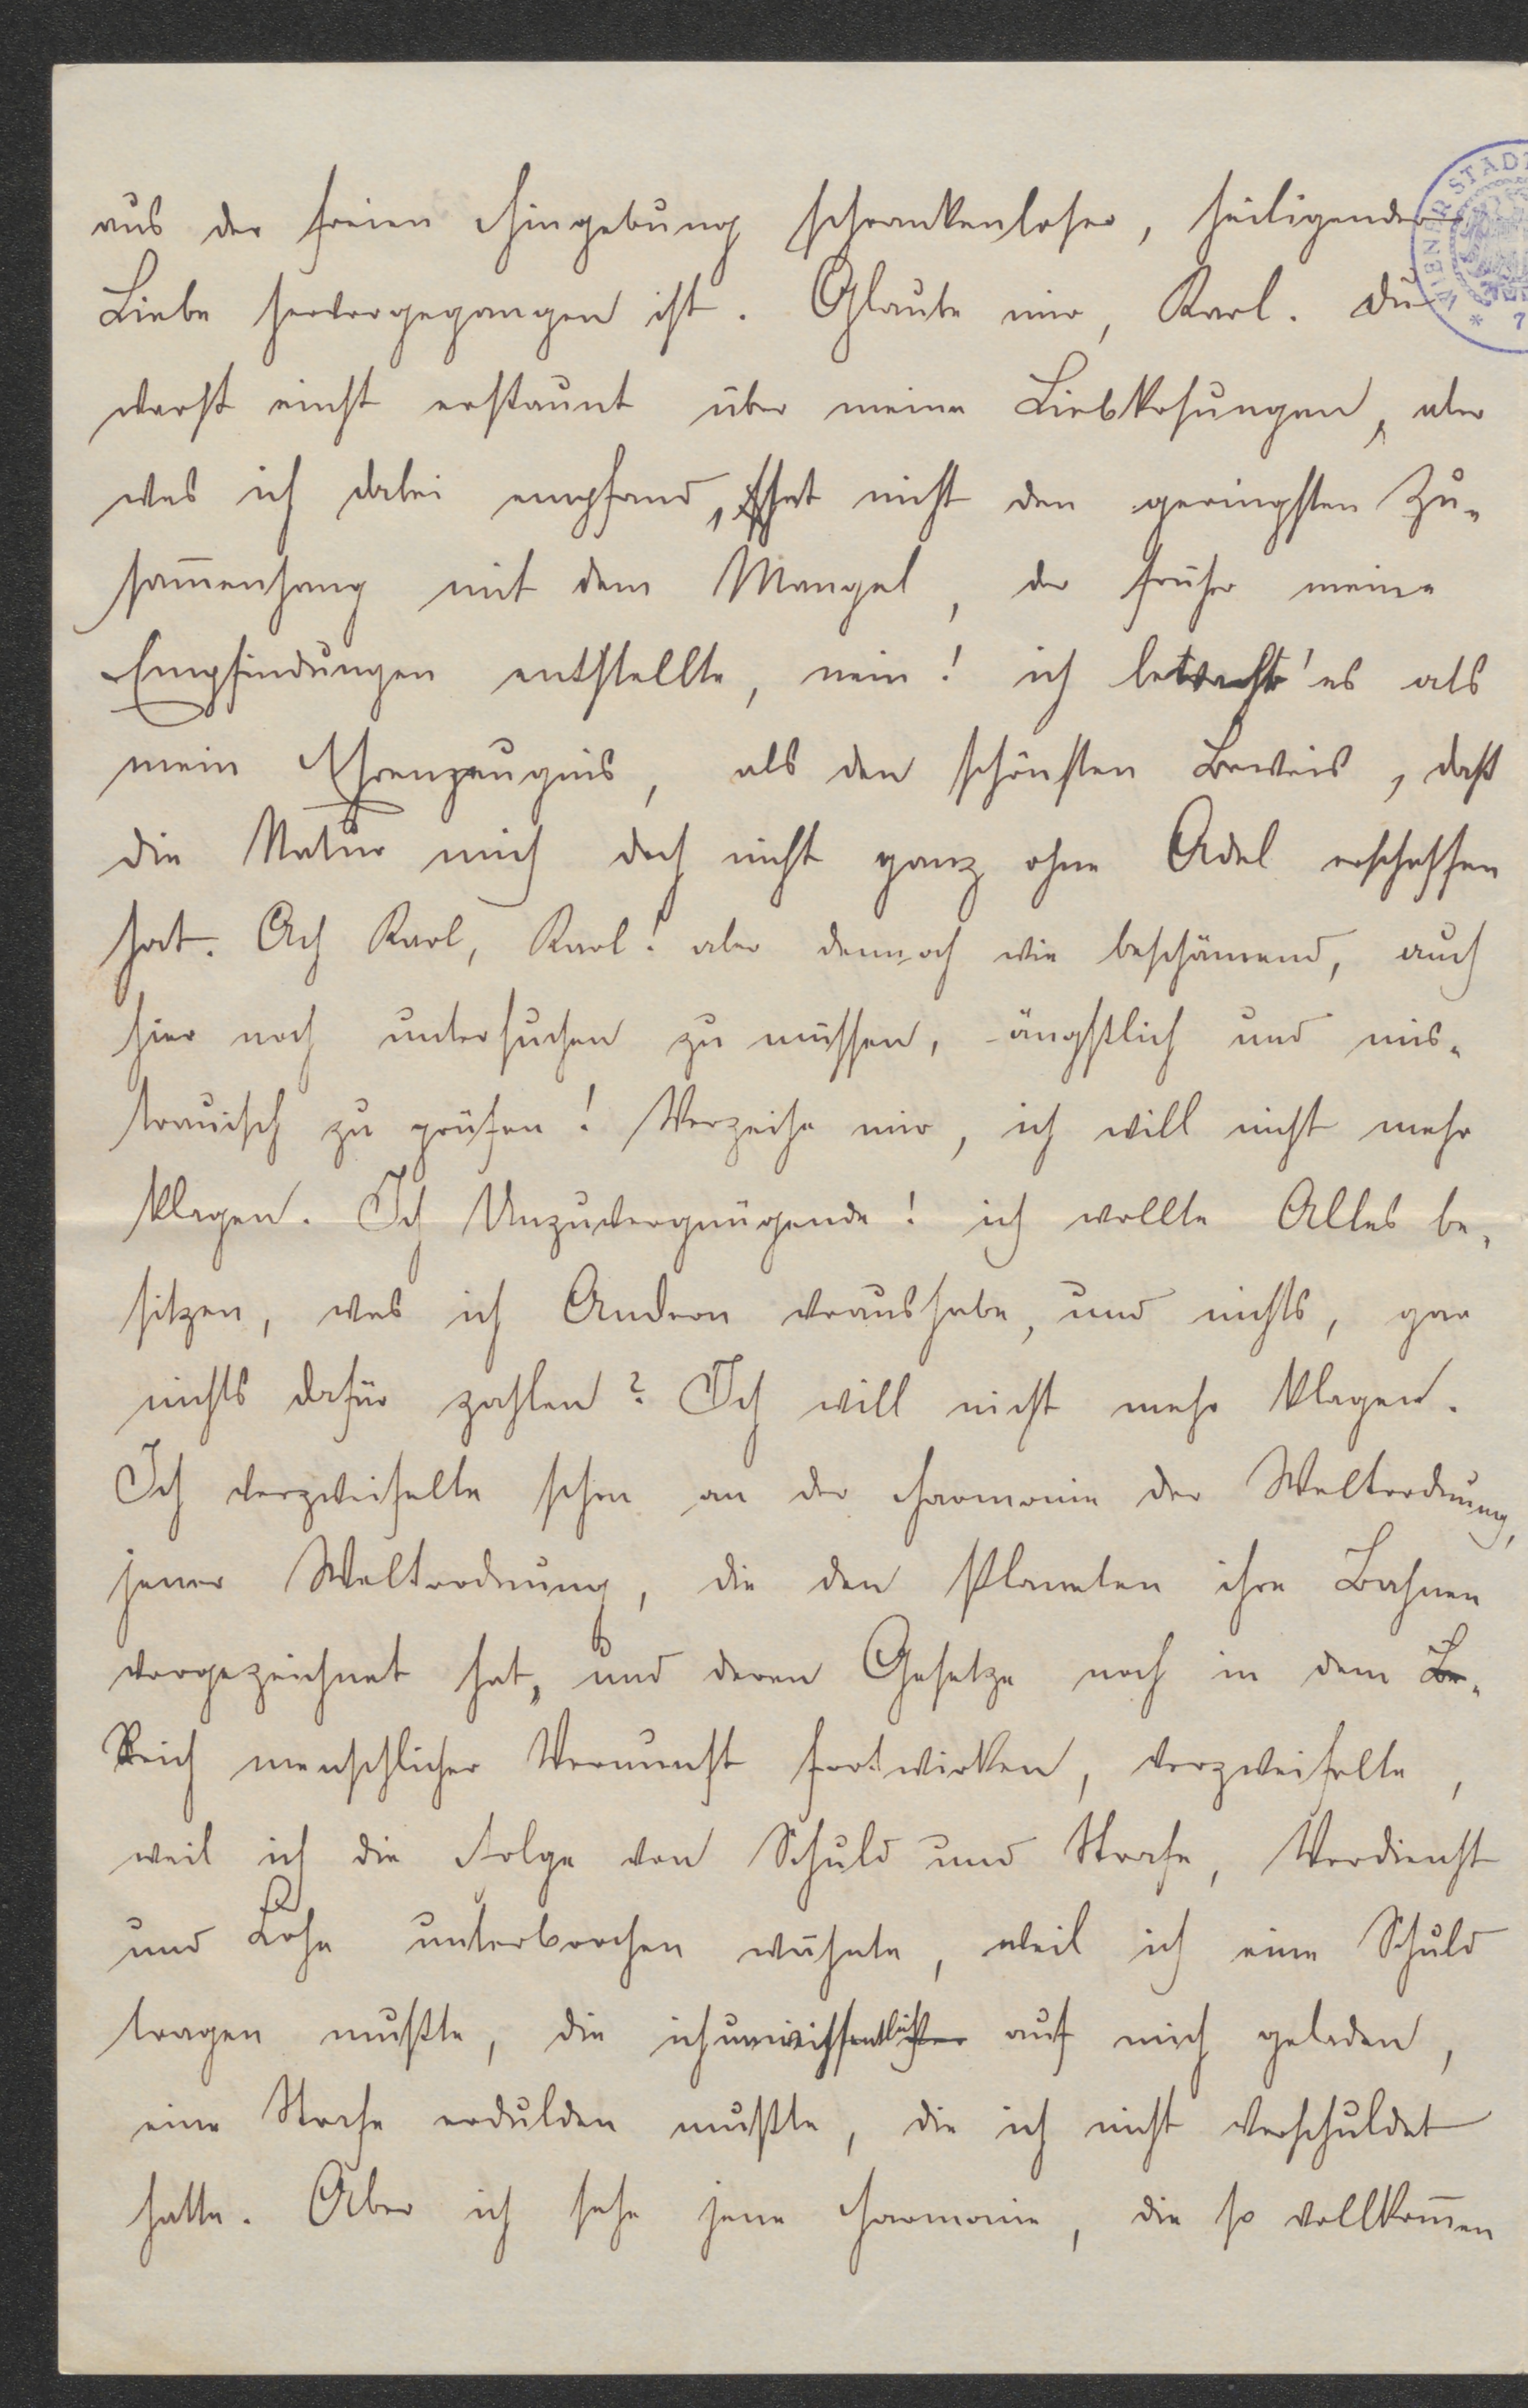 aus der freien Hingebung schrankenloser, heiligender
Liebe hervorgegangen ist. Glaube mir, Karl. Du
warst einst erstaunt über meine Liebkosungen, aber
was ich dabei empfand, hat nicht den geringsten Zu-
sam̅enhang mit dem Mangel, der früher meine
Empfindungen entstellte, nein! ich betracht' es als
mein Ehrenzeugnis, als den schönsten Beweis, daß
die Natur mich doch nicht ganz ohne Adel erschaffen
hat. Ach Karl, Karl! aber dennoch wie beschämend, auch
hier noch untersuchen zu müssen, ängstlich und mis-
trauisch zu prüfen! Verzeihe mir, ich will nicht mehr
klagen. Ich Unzuvergnügende! ich wollte Alles be-
sitzen, was ich Andern voraushabe, und nichts, gar
nichts dafür zahlen? Ich will nicht mehr klagen.
Ich verzweifelte schon an der Harmonie der Weltordnung,
jener Weltordnung, die den Planeten ihre Bahnen
vorgezeichnet hat, und deren Gesetze noch in dem Be-
Reich menschlicher Vernunft fortwirken, verzweifelte,
weil ich die Folge von Schuld und Strafe, Verdienst
und Lohn unterbrochen wähnte, weil ich eine Schuld
tragen mußte, die ich unwissentlich auf mich geladen,
eine Strafe erdulden mußte, die ich nicht verschuldet
hatte. Aber ich sehe jene Harmonie, die so vollkom̅en
WIENER STADT
* 7